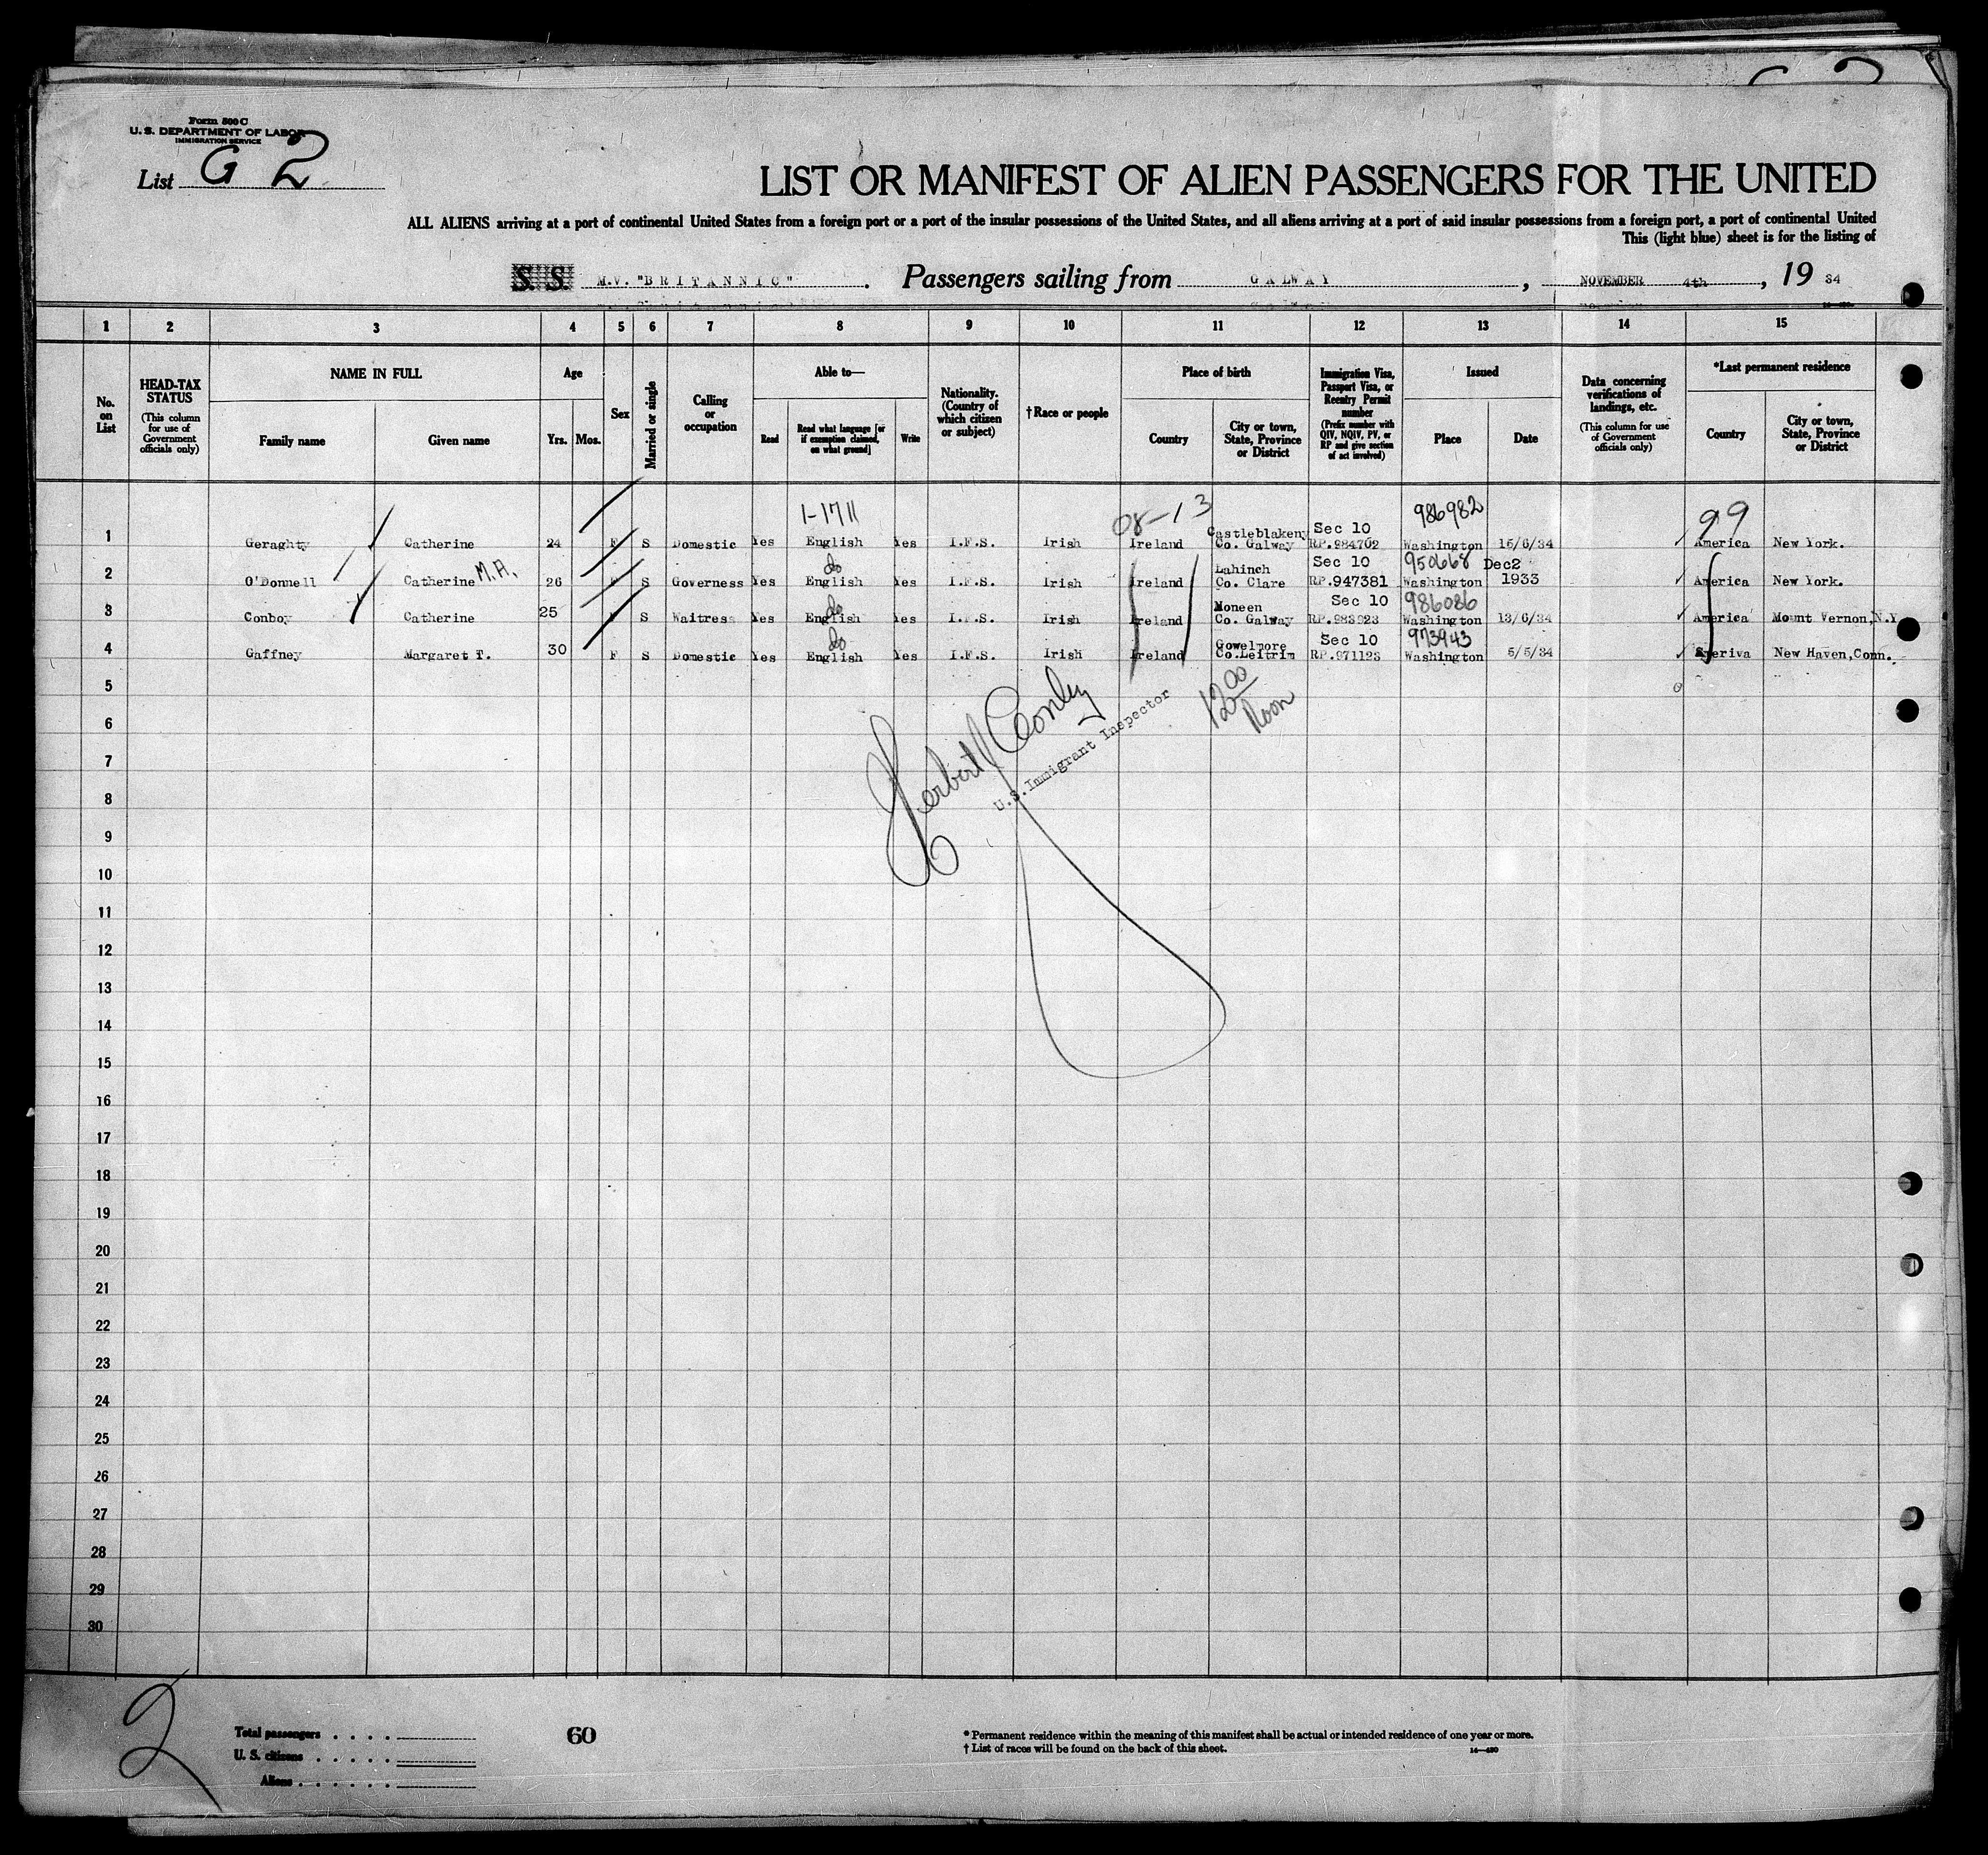 Form 500 C
U. S. DEPARTMENT OF LABOR
IMMIGRATION SERVICE
List G 2
LIST OR MANIFEST OF ALIEN PASSENGERS FOR THE UNITED
ALL ALIENS arriving at a port of continental United States from a foreign port or a port of the insular possessions of the United States, and all aliens arriving at a port of said insular possessions from a foreign port, a port of continental United
This (light blue) sheet is for the listing of
S. S. M.V. "BRITANNIC". Passengers sailing from GALWAY, NOVEMBER 4th, 19 34
1 2 3 4 5 6 7 8 9 10 11 12 13 14 15
No. on List
HEAD-TAX STATUS
(This column for use of Government officials only)
NAME IN FULL
Family name
Given name
Age
Yrs. Mos.
Sex
Married or single
Calling or occupation
Able to—
Read
Read what language [or if exemption claimed, on what ground]
Write
Nationality. (Country of which citizen or subject)
† Race or people
Place of birth
Country
City or town, State, Province or District
Immigration Visa, Passport Visa, or Reentry Permit number
(Prefix number with QIV, NQIV, PV, or RP and give section of act involved)
Issued
Place
Date
Data concerning verifications of landings, etc.
(This column for use of Government officials only)
*Last permanent residence
Country
City or town, State, Province or District
1-1711 08-13 986982 99
Castleblakeny Sec 10
1 Geraghty Catherine 24 F S Domestic Yes English Yes I.F.S. Irish Ireland Co. Galway RP.984702 Washington 16/6/34 America New York.
do Lahinch Sec 10 950668 Dec2
2 O'Donnell Catherine M.A. 26 F S Governess Yes English Yes I.F.S. Irish Ireland Co. Clare RP.947381 Washington 1933 America New York.
do Moneen Sec 10 986086
3 Conboy Catherine 25 F S Waitress Yes English Yes I.F.S. Irish Ireland Co. Galway RP.983923 Washington 13/6/34 America Mount Vernon, N.Y.
do Gowelmore Sec 10 973943
4 Gaffney Margaret T. 30 F S Domestic Yes English Yes I.F.S. Irish Ireland Co.Leitrim RP.971123 Washington 5/5/34 Ameriva New Haven,Conn.
5
6
7
8
9
10
11
12
13
14
15
16
17
18
19
20
21
22
23
24
25
26
27
28
29
30
Herbert J Conley
U.S. Immigrant Inspector
12 00 Noon
2
Total passengers
U. S. citizens
Aliens
60
* Permanent residence within the meaning of this manifest shall be actual or intended residence of one year or more.
† List of races will be found on the back of this sheet.
14—430